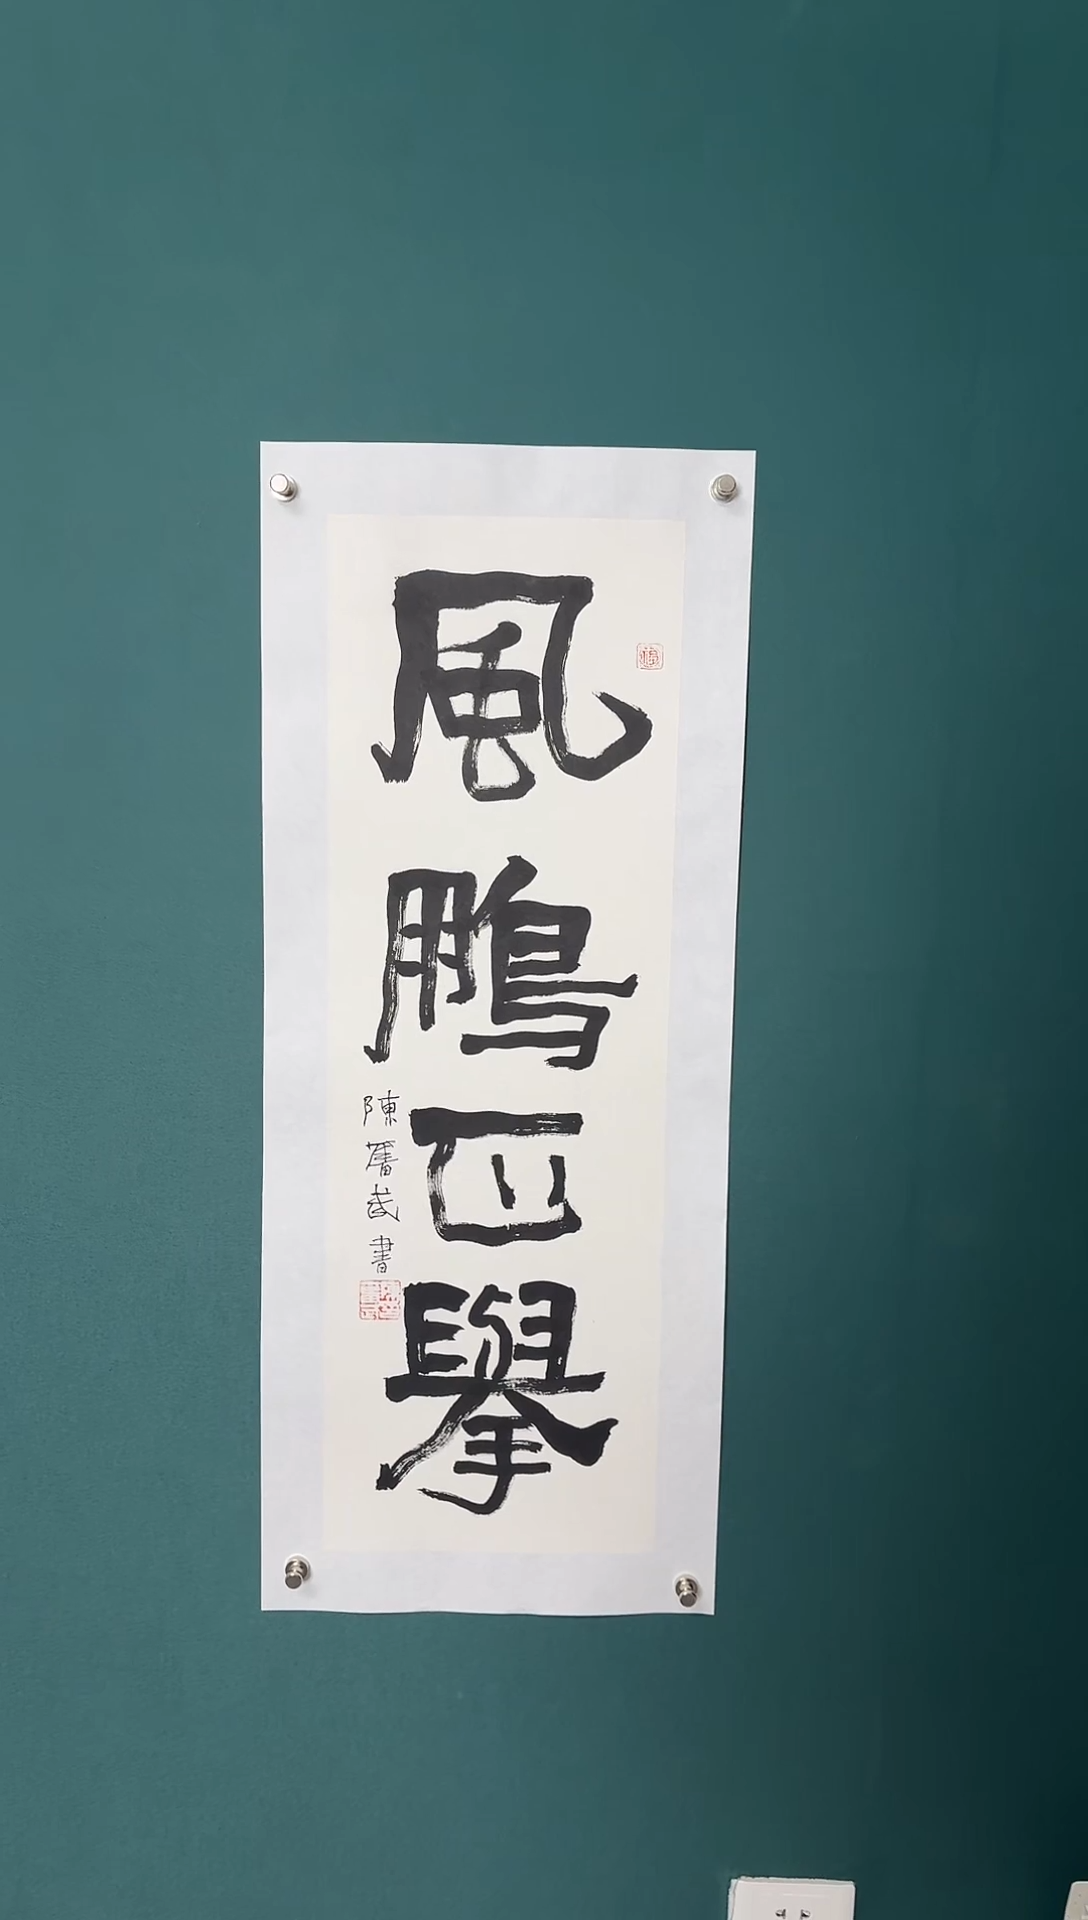 風鵬正舉
陳舊武書